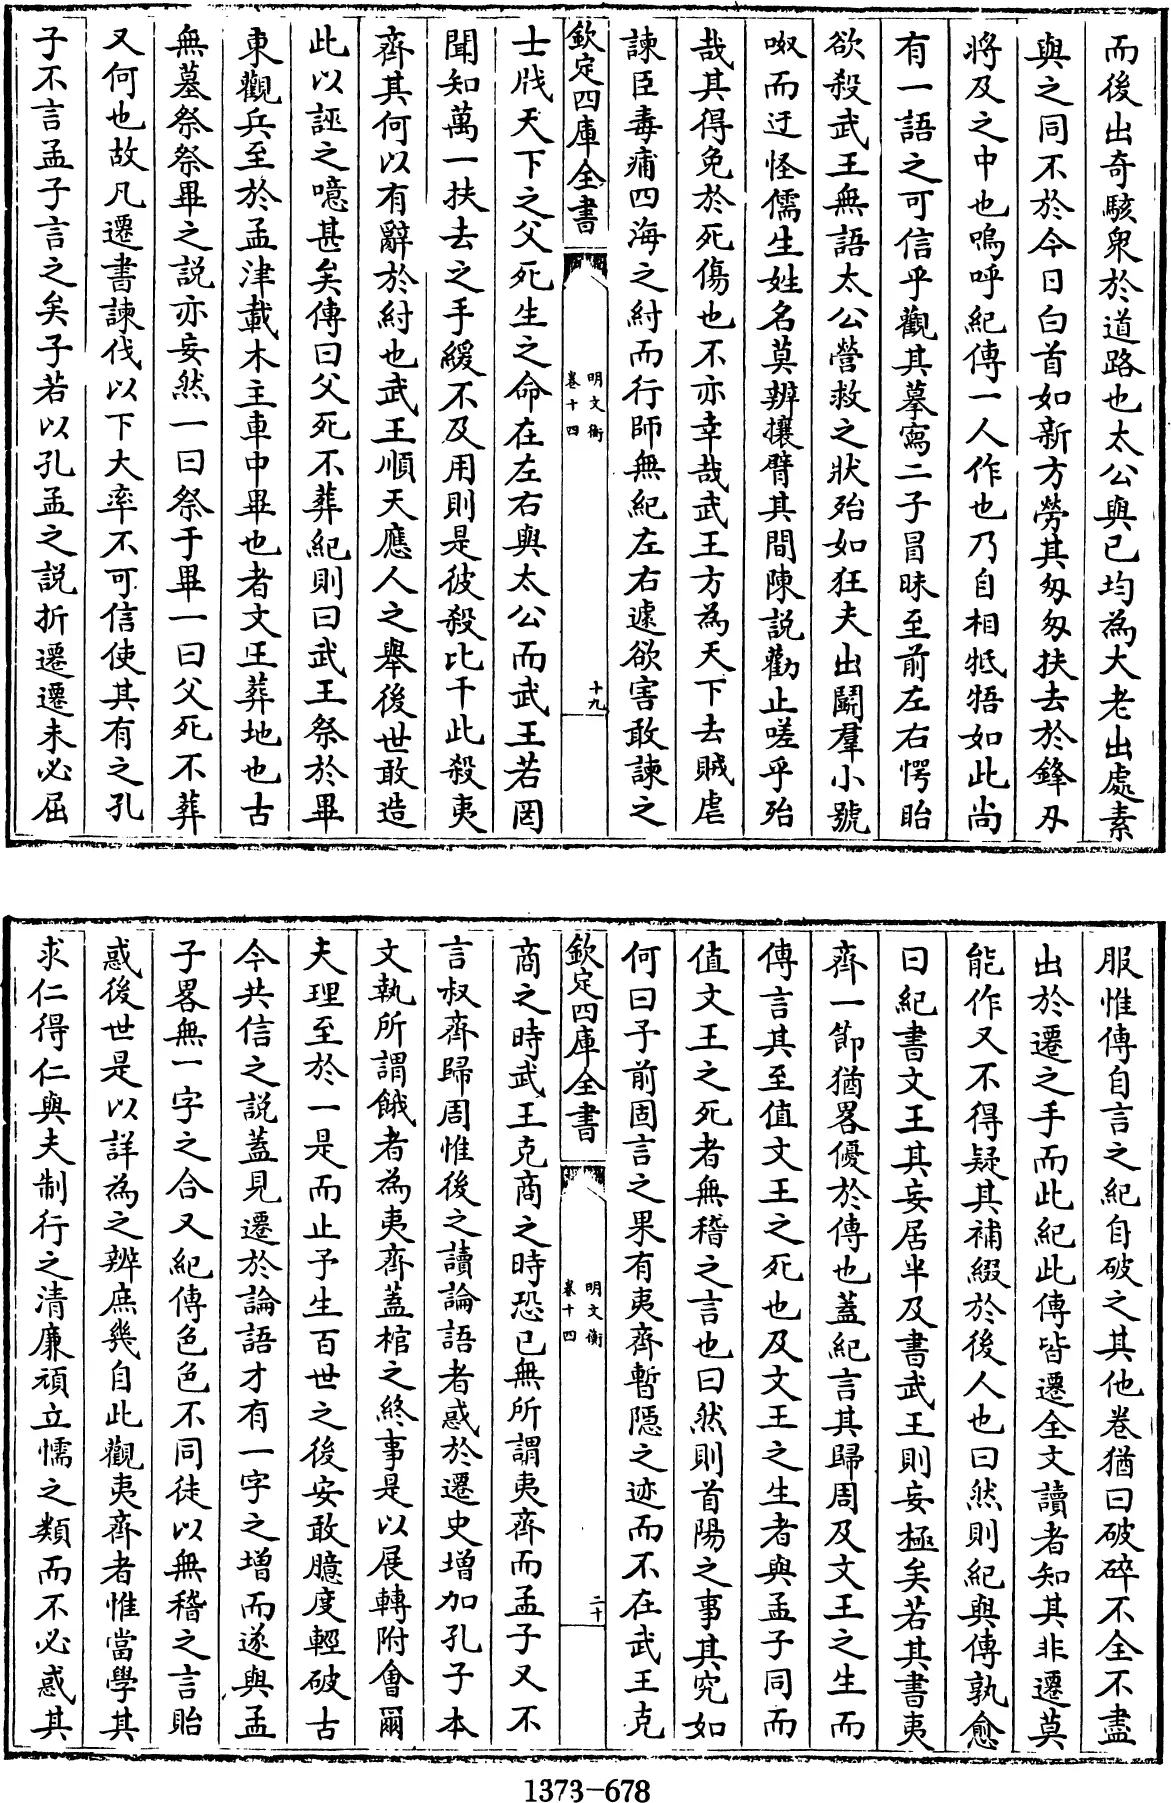 而後出奇駭衆於道路也太公與已均為大老出處素
與之同不於今日白首如新方勞其匆匆扶去於鋒刃
將及之中也嗚呼紀傳一人作也乃自相牴牾如此尚
有一語之可信乎觀其摹寫二子冒昧至前左右愕眙
欲殺武王無語太公營救之狀殆如狂夫出鬭羣小號
呶而迂怪儒生姓名莫辨攘臂其間陳説勸止嗟乎殆
哉其得免於死傷也不亦幸哉武王方為天下去賊虐
諫臣毒痡四海之紂而行師無紀左右遽欲害敢諫之
欽定四庫全書
明文衡
卷十四
十九
士戕天下之父死生之命在左右與太公而武王若罔
聞知萬一扶去之手緩不及用則是彼殺比干此殺夷
齊其何以有辭於紂也武王順天應人之舉後世敢造
此以誣之噫甚矣傳曰父死不葬紀則曰武王祭於畢
東觀兵至於孟津載木主車中畢也者文王葬地也古
無墓祭祭畢之説亦妄然一曰祭于畢一曰父死不葬
又何也故凡遷書諫伐以下大率不可信使其有之孔
子不言孟子言之矣子若以孔孟之説折遷遷未必屈
服惟傳自言之紀自破之其他卷猶曰破碎不全不盡
出於遷之手而此紀此傳皆遷全文讀者知其非遷莫
能作又不得疑其補綴於後人也曰然則紀與傳孰愈
曰紀書文王其妄居半及書武王則妄極矣若其書夷
齊一節猶畧優於傳也蓋紀言其歸周及文王之生而
傳言其至值文王之死也及文王之生者與孟子同而
值文王之死者無稽之言也曰然則首陽之事其究如
何曰予前固言之果有夷齊暫隱之迹而不在武王克
欽定四庫全書
明文衡
卷十四
二十
商之時武王克商之時恐已無所謂夷齊而孟子又不
言叔齊歸周惟後之讀論語者惑於遷史增加孔子本
文執所謂餓者為夷齊蓋棺之終事是以展轉附會爾
夫理至於一是而止予生百世之後安敢臆度輕破古
今共信之説蓋見遷於論語才有一字之增而遂與孟
子畧無一字之合又紀傳色色不同徒以無稽之言貽
惑後世是以詳為之辨庶幾自此觀夷齊者惟當學其
求仁得仁與夫制行之清廉頑立懦之類而不必惑其
1373-678